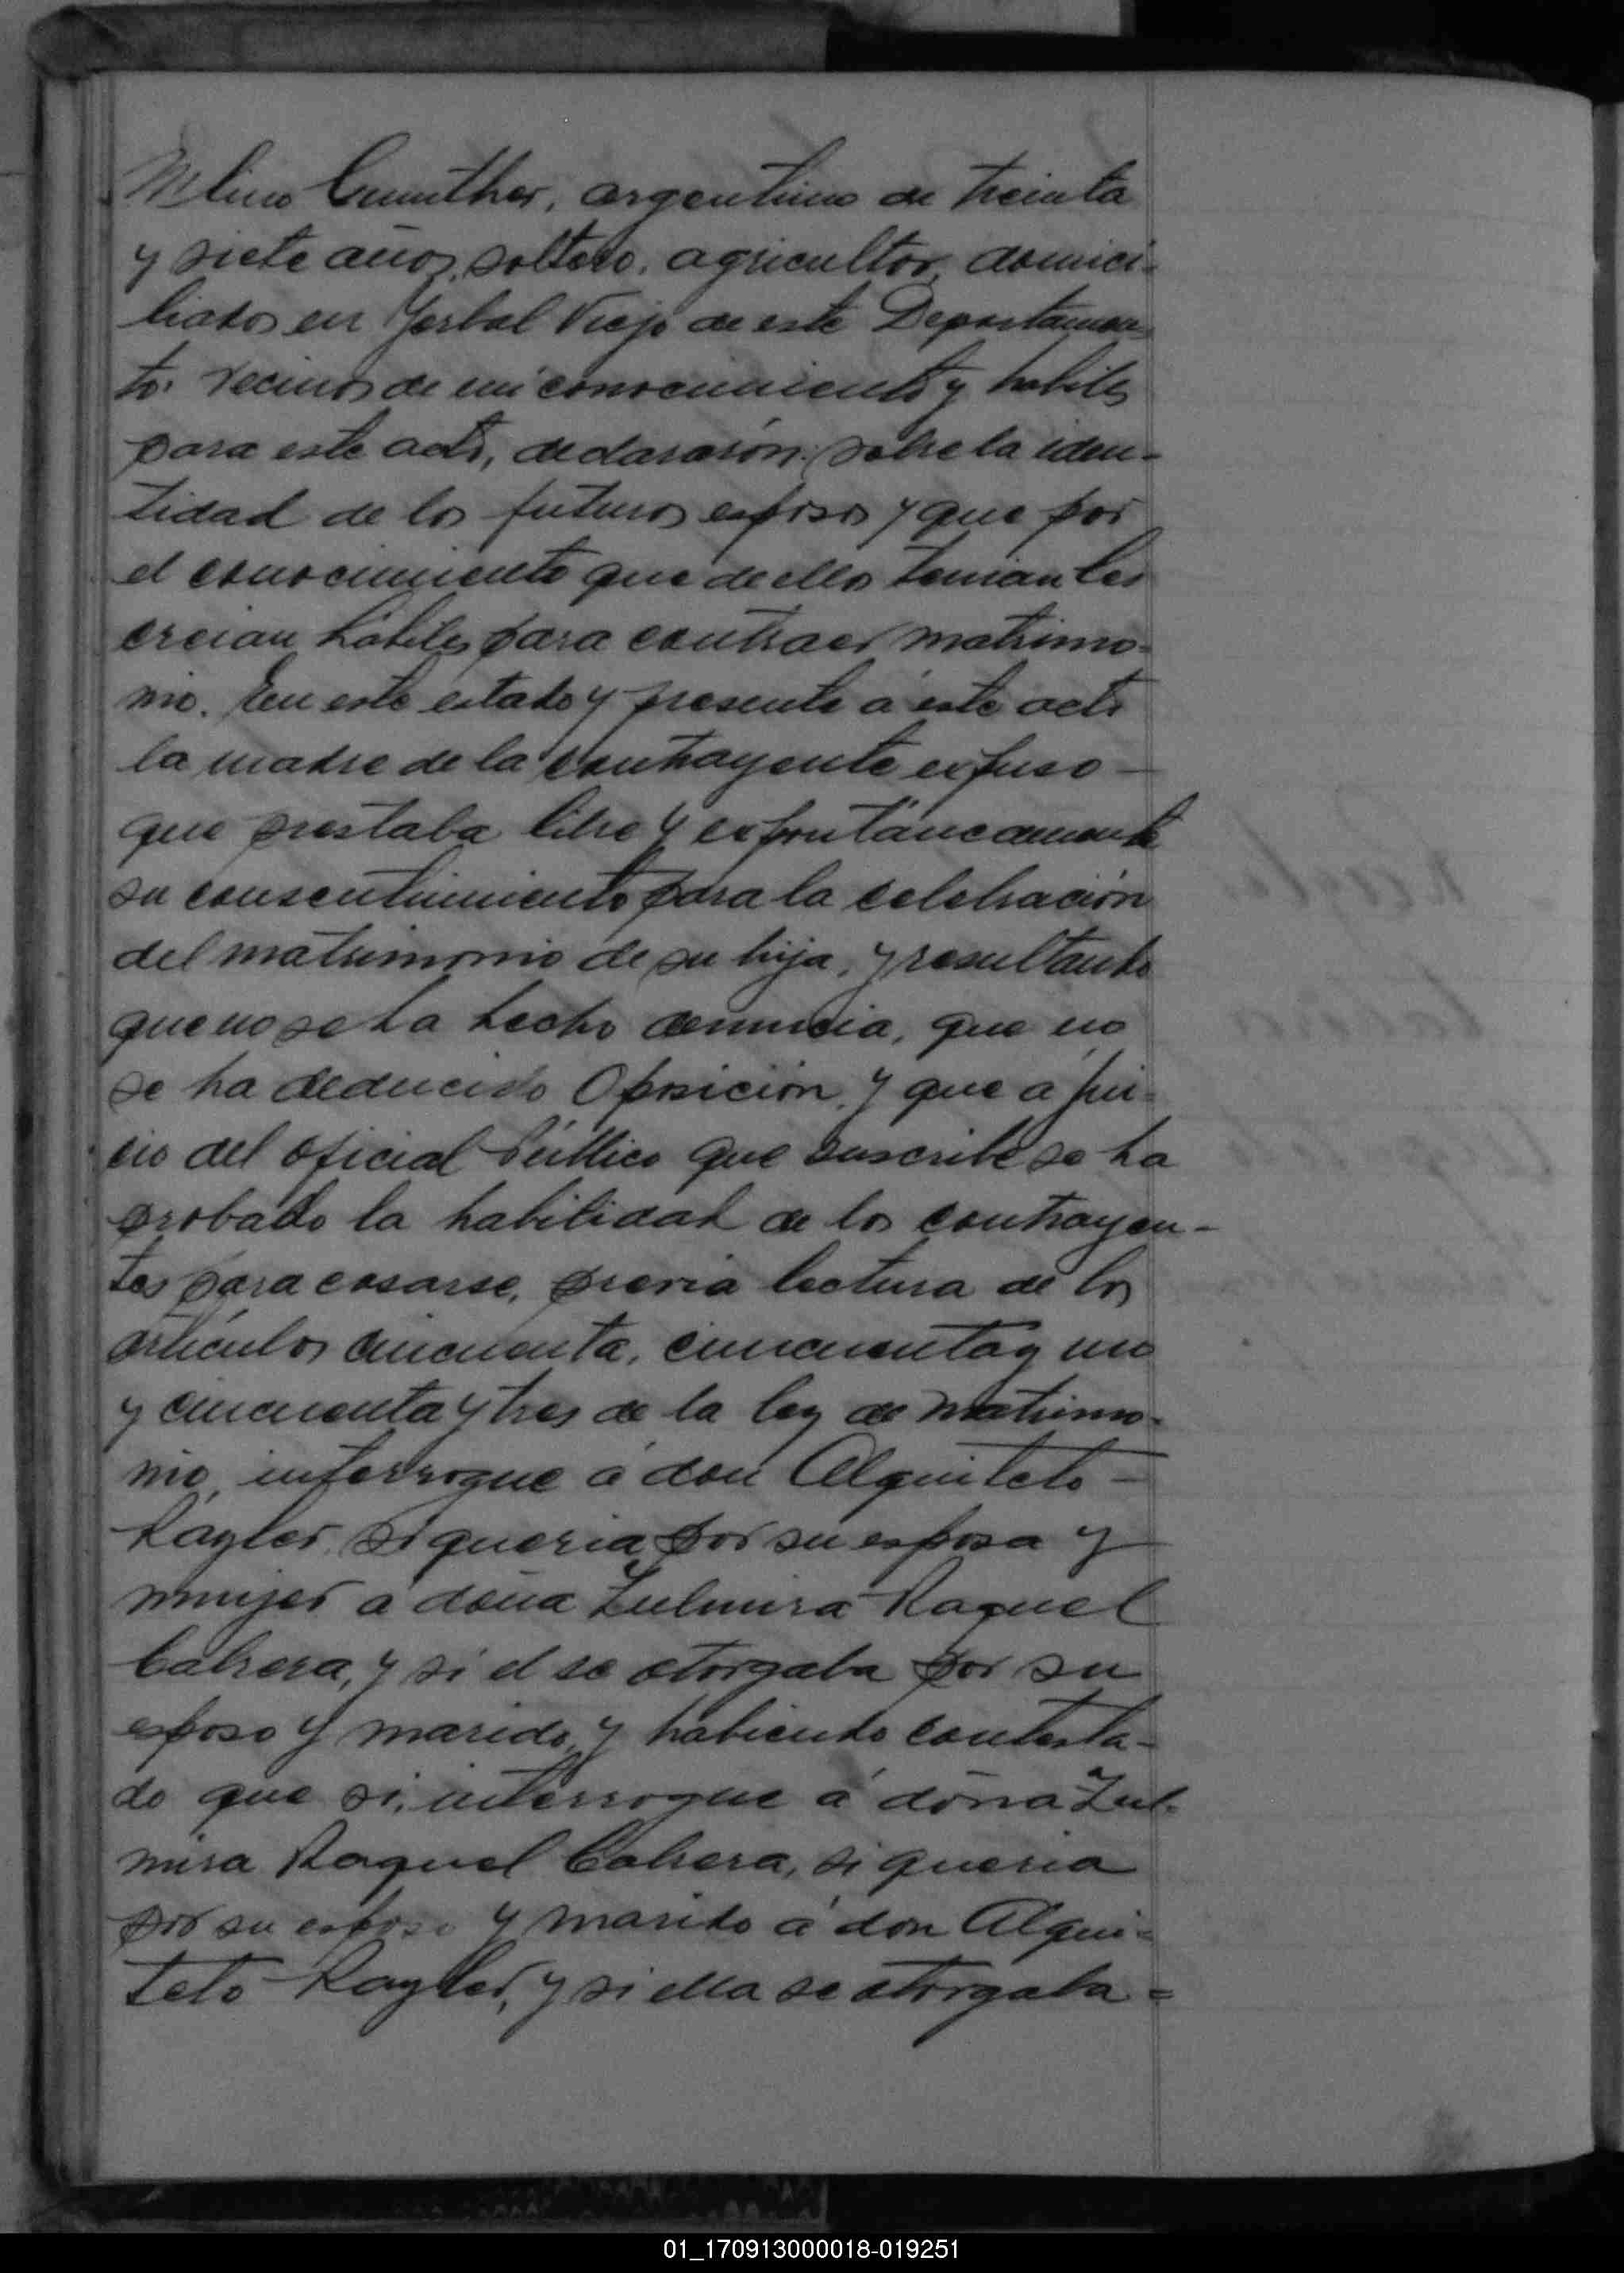 Gunther, argentino de treinta
y siete años, soltero, agricultor, domici-
liados en Yerbal Viejo de este Departamen-
to. Vecinos de mi conocimiento y habiles
para este acto, declararón: sobre la iden-
tidad de los futuros esposos y que por
el conocimiento que de ellos tenian los
creian hábiles para contraer matrimo-
nio. En este estado y presente á este acto
la madre de la contrayente expuso —
que prestaba libre y espontáneamente
su consentimiento para la celebración
del matrimonio de su hija, y resultando
que no se ha hecho denuncia, que no
se ha deducido Oposición, y que a jui-
cio del oficial Público que suscribe se ha
probado la habilidad de los contrayen-
tes para casarse, previa lectura de los
artículos cincuenta, cincuenta y uno
y cincuenta y tres de la ley de matrimo-
nio, interrogue á don Alquiteto —
Kayler, si queria por su esposa y
mujer a doña Zulmira Raquel
Cabrera, y si el se otorgaba por su
esposo y marido, y habiendo contesta-
do que si, interrogue á doña Zul-
mira Raquel Cabrera, si queria
por su esposo y marido á don Alqui-
teto Kayler, y si ella se otorgaba =
01_170913000018-019251